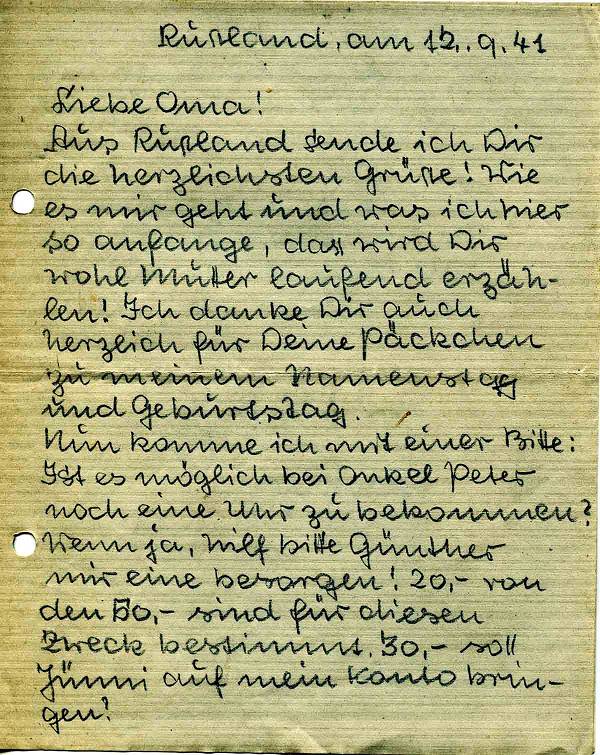 Rußland, am 12. 9. 41
Liebe Oma!
Aus Rußland sende ich Dir
die herzlichsten Grüße! Wie
es mir geht und was ich hier
so anfange, daß wird Dir
wohl Mutter laufend erzäh-
len! Ich danke Dir auch
herzlich für Deine Päckchen
zu meinem Namenstag
und Geburtstag.
Nun komme ich mit einer Bitte:
Ist es möglich bei Onkel Peter
noch eine Uhr zu bekommen?
Wenn ja, hilf bitte Günther
mir eine besorgen! 20,- von
den 50,- sind für diesen
Zweck bestimmt. 30,- soll
auf mein Konto brin-
gen!